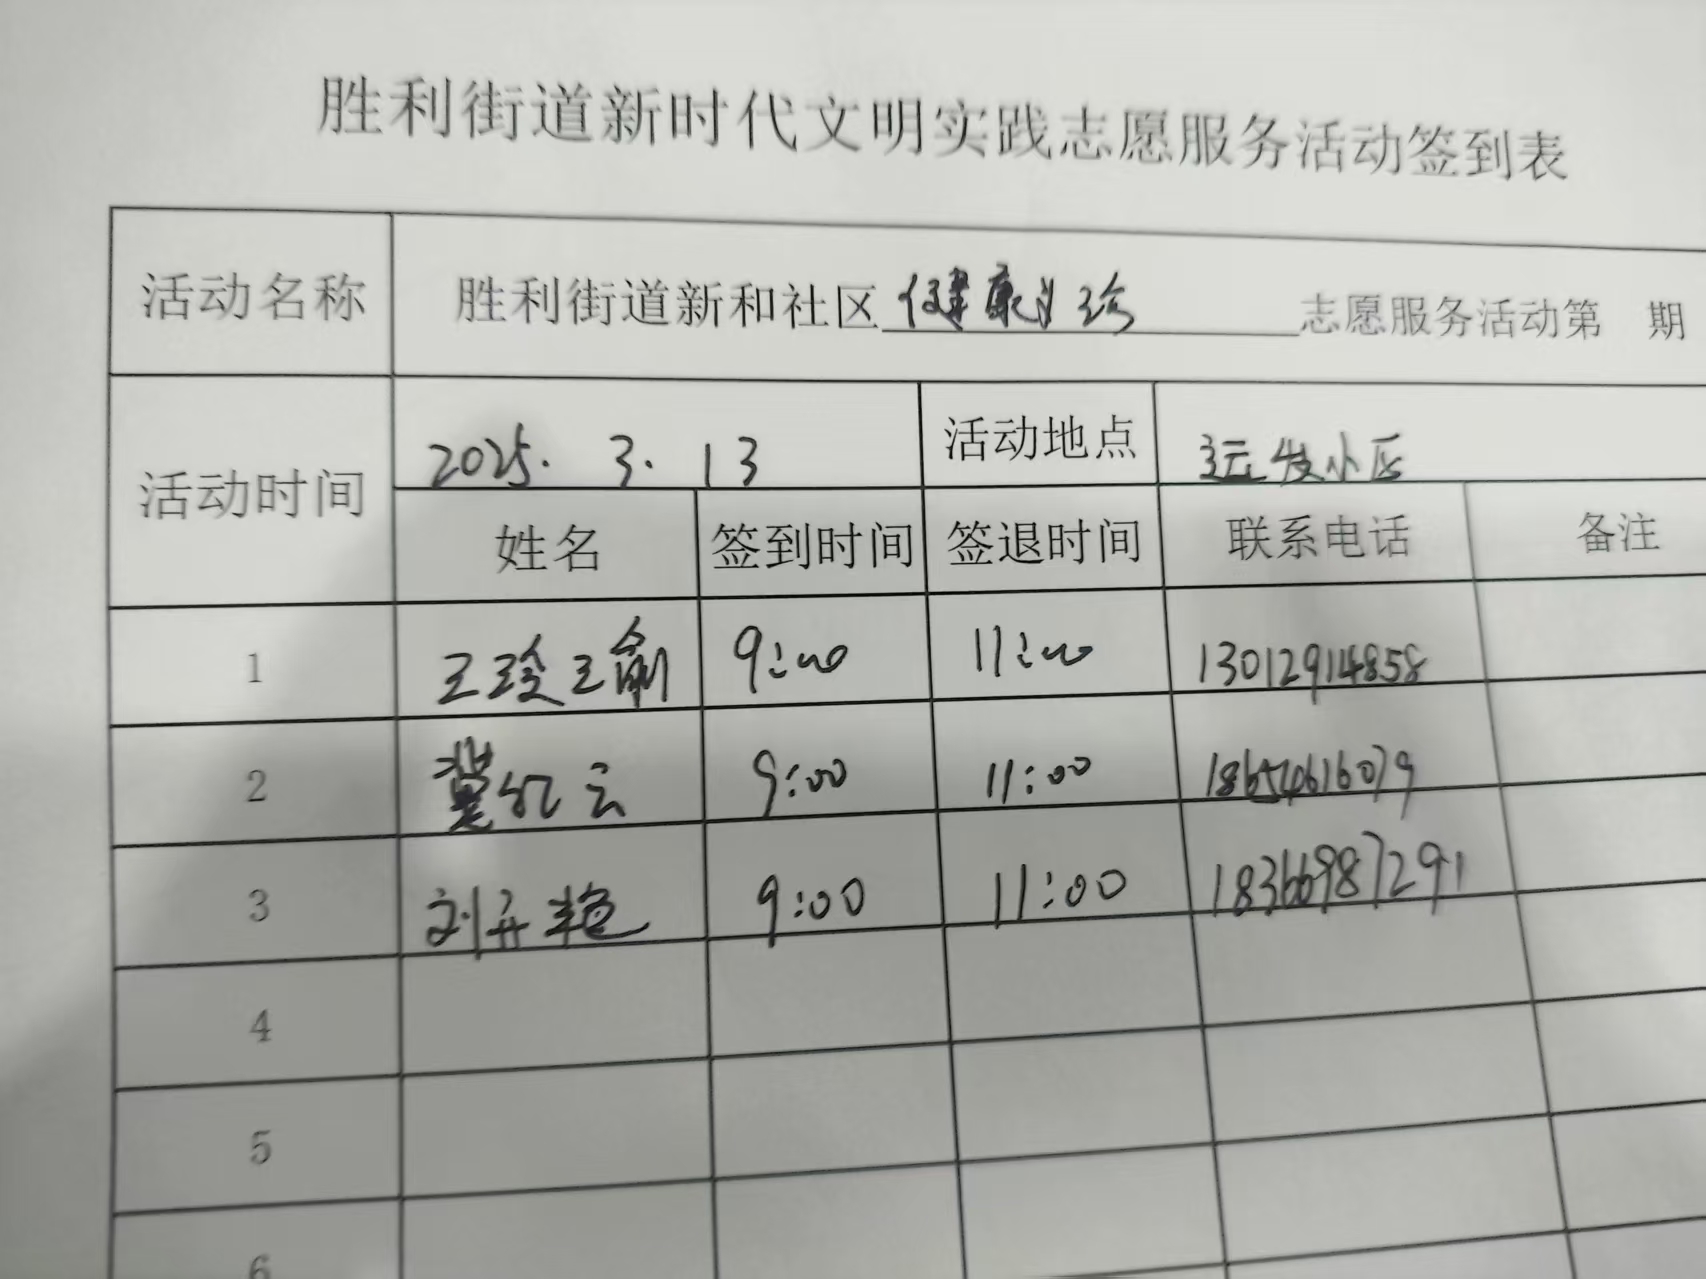 胜利街道新时代文明实践志愿服务活动签到表
活动名称 胜利街道新和社区健康义诊志愿服务活动第 期
活动时间 2025. 3. 13 活动地点 远发小区
姓名 签到时间 签退时间 联系电话 备注
1 王玲瑜 9:00 11:00 13012914858
2 冀红云 9:00 11:00 18654616079
3 刘开艳 9:00 11:00 18366987291
4
5
6